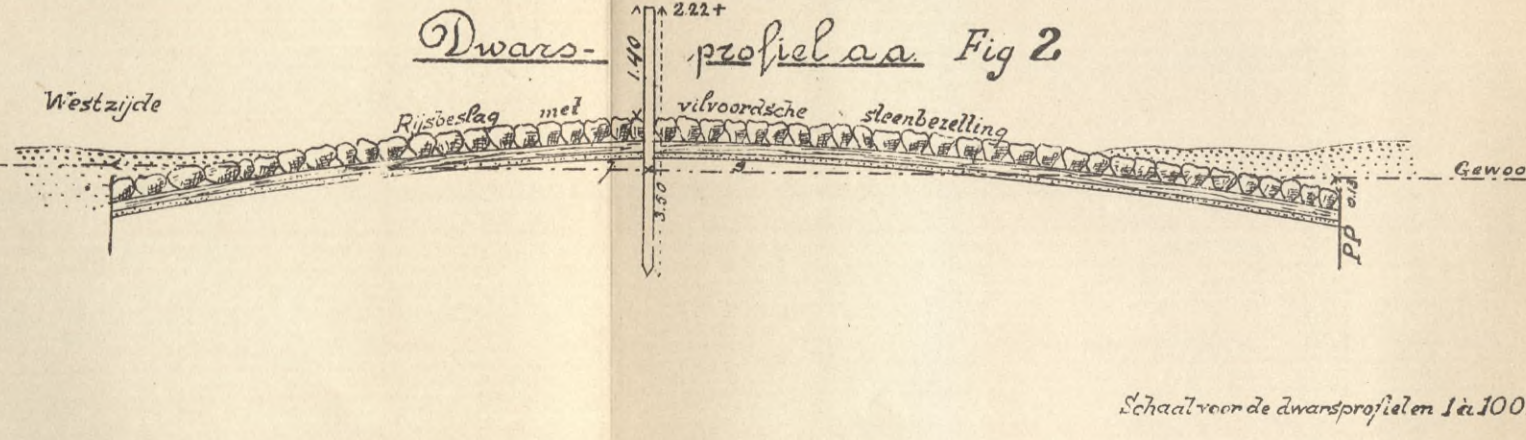 2.22+
Dwars- profiel a.a. Fig 2
1.40
Westzijde
Rijsbeslag met vilvoordsche steenbezetting
Gewoo
3.50
0.15
PP
Schaal voor de dwarsprofielen 1 à 100